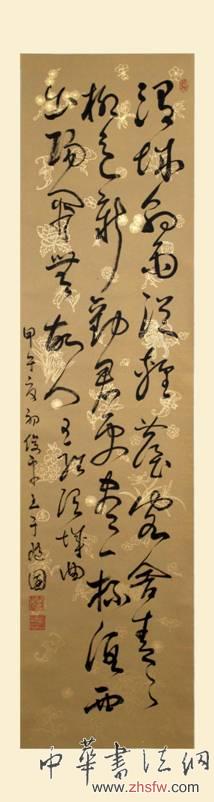 渭城朝雨浥輕塵客舍青々
柳色新勸君更盡一杯酒西
出陽關無故人 王維渭城曲
甲午夏初
中華書法網
www.zhsfw.com